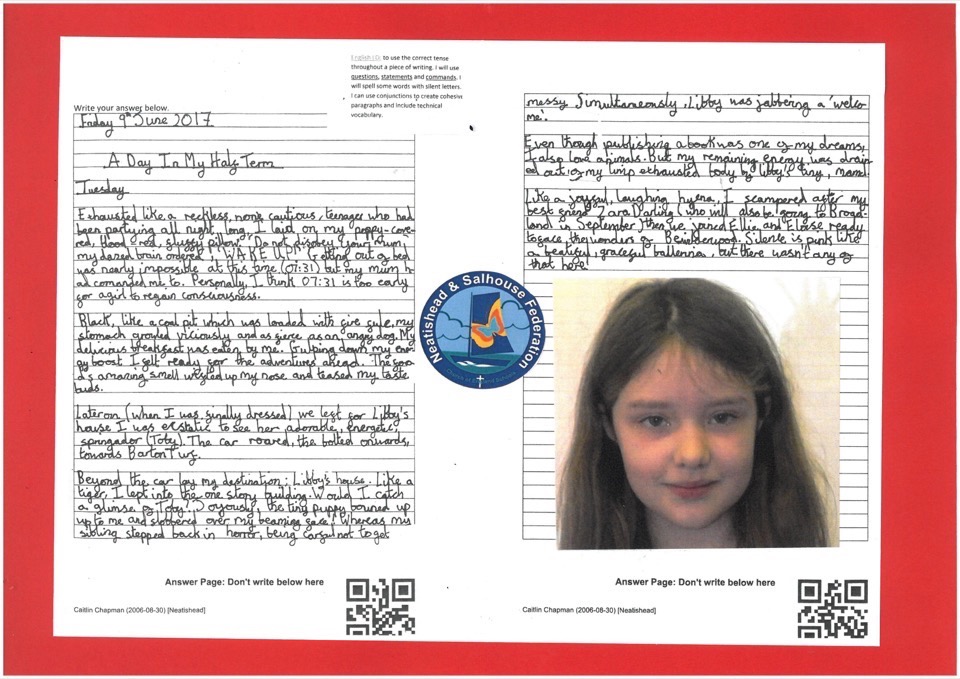 English LO: to use the correct tense
throughout a piece of writing. I will use
questions, statements and commands. I
will spell some words with silent letters.
I can use conjunctions to create cohesive
paragraphs and include technical
vocabulary.
Write your answer below.
Friday 9th June 2017
A Day In My Half Term
Tuesday
Exhausted like a reckless, non cautious, teenager who had
been partying all night long, I laid on my poppy-cove-
red, blood red, fluffy pillow. "Do not disobey your mum,"
my dazed brain ordered, "WAKE UP!" Getting out of bed
was nearly impossible at this time (07:31) but my mum h-
ad comanded me to. Personally, I think 07:31 is too early
for a girl to regain consciousness.
Black, like a coal pit which was loaded with fire fule, my
stomach growled viciously and as fierce as an angry dog. My
delicious breakfast was eaten by me. Gulping down my ener-
gy boost I felt ready for the adventures ahead. The foo-
d's amazing smell wafted up my nose and teased my taste
buds.
Later on (when I was finally dressed) we left for Libby's
house I was ecstatic to see her adorable, energetic,
springador (Toby). The car roared, the bolted onwards,
towards Barton Turf.
Beyond the car lay my destination: Libby's house. Like a
tiger, I lept into the one story building. Would I catch
a glimse of Toby? Joyously, the tiny puppy bouned up
up to me and slobered over my beaming face! Whereas my
sibling stepped back in horror, being carful not to get
Answer Page: Don't write below here
Caitlin Chapman (2006-08-30) [Neatishead]
messy. Simultaneously, Libby was jabbering a 'welco-
me'.
Even though publishing a book was one of my dreams,
I also love animals. But my remaining enemy was drain-
ed out of my limp exhausted body by Libby's tiny, mamal
Like a joysful, laughing hyena, I scampered after my
best friend Zara Darling (who will also be going to Broad-
land in September) then we joined Ellie and Eloise ready
to face the wonders of Bewilderwood. Silence is pink like
a beatiful, graceful ballerina, but there wasn't any of
that here!
Neatishead & Salhouse Federation
Church of England Schools
Answer Page: Don't write below here
Caitlin Chapman (2006-08-30) [Neatishead]